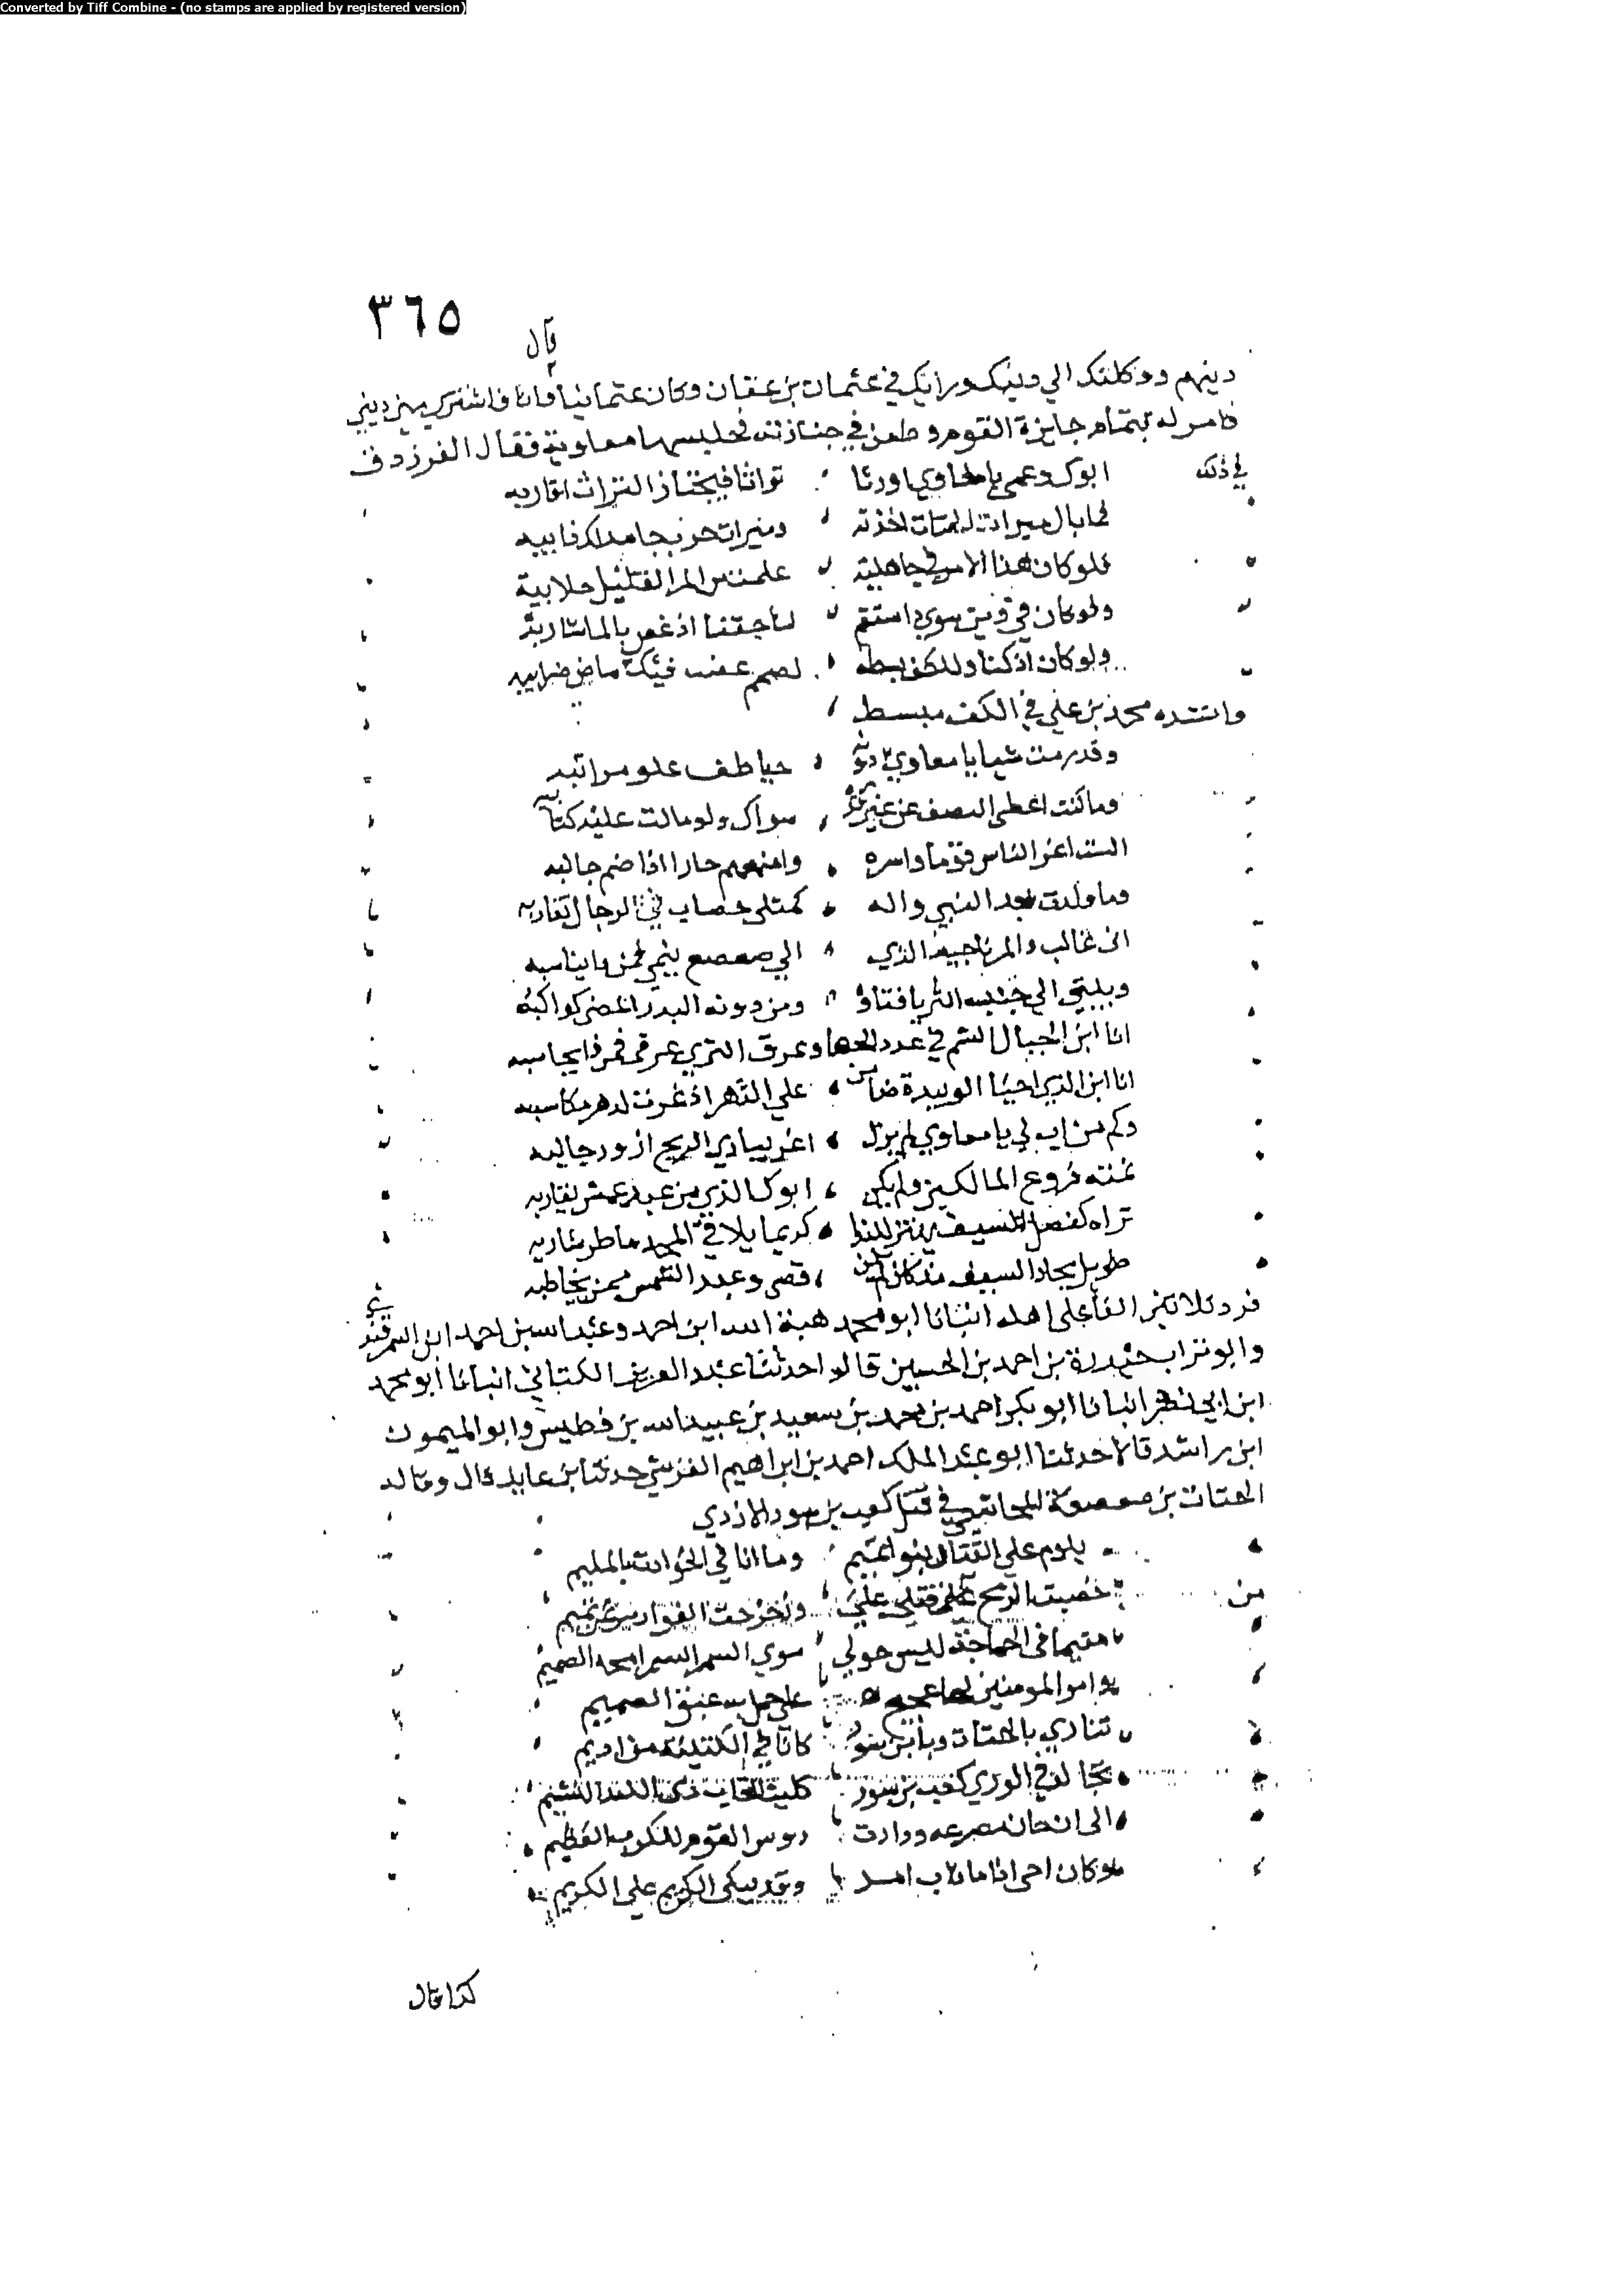 Converted by Tiff Combine - (no stamps are applied by registered version)
٣٦٥
قال
دينهم ووكلتك الي دينك ورايك في عثمان بن عفان وكان عثمانيا وانا فاشتر مني ديني
فامر له بتمام جايزة القوم وطعن في جنازته فحبسها معاوية فقال الفرزدق
في ذلك ابوك وعمي يا معاوي اورثا تراثا فيحتاز التراث اقاربه
فما بال ميراث الحتات اخذته وميراث حرب جامد لك ذايبه
فلو كان هذا الامر في جاهلية علمت من المرا القليل حلايبه
ولو كان في دين سوي ذا شنئتم لنا حقنا اذ غص بالما شاربه
ولو كان اذ كنا وللكف بسطه لصمم عضب فيك ماض ضرايبه
وانشده محمد بن علي في الكف مبسط
وقد رمت شيا يا معاوي دونه خياطف علو مراتبه
وما كنت اعطي النصف عن غير قدرة سواك ولو مالت عليه كتايبه
الست اعز الناس قوما واسره وامنعهم جارا اذا ضم جانبه
وما ولدت بعد النبي واله كمثلي حصان في الرجال تقاربه
ابي غالب والمر ناجية الذي الي صعصع ينمي فمن ذا يناسبه
وبيتي الي جنب الثريا فناؤه ومن دونه البدر المضي كواكبه
انا ابن الجبال الشم في عدد الحصا وعرق الثري عرقي فمن ذا يحاسبه
انا ابن الذي احيا الوييدة ضامن علي الدهر اذ عزت لدهر مكاسبه
وكم من اب لي يا معاوي لم يزل اغر يباري الريح ازور جانبه
نمته فروع المالكين ولم يكن ابوك الذي من عبد شمس يقاربه
تراه كنصل السيف يهتز للندا كريما يلاقي المجد ما طر شاربه
طويل نجاد السيف مذ كان لم يكن قصي وعبد الشمس ممن يخاطبه
فرد ثلاثين الفا علي اهله انبانا ابو محمد هبة الله ابن احمد وعبد الله بن احمد ابن السمرقندي
وابو تراب حيدرة بن احمد بن الحسين قالوا حدثنا عبد العزيز الكتاني انبانا ابو محمد
ابن ابي نصر انبانا ابو بكر احمد بن محمد بن سعيد بن عبيد الله بن فطيس وابو الميمون
ابن راشد قالا حدثنا ابو عبد الملك احمد بن ابراهيم القرشي حدثنا بن عايذ قال وقال
الحتات بن صعصعة المجاشعي في قتل كعب بن سور الازدي
يلوم علي القتال بنو تميم وما انا في الحوادث بالمليم
من خضبت الرمح
مقيما في العجاجة ليس حولي سوي السمر
وامر المومنين
تنادي بالحتات كانا في الكتيبة من اديم
في الوري كعب بن سور
الي ان حان مصرعه ودارت روس القوم للكرب العظيم
وكان اخي وقد يبكي الكريم علي الكريم
كذا قال